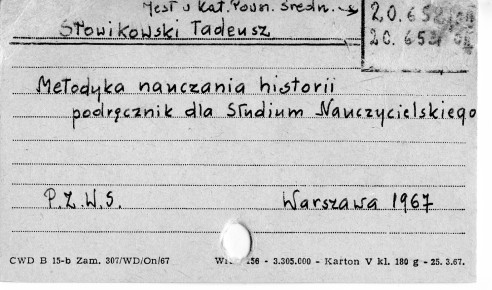 Jest w Kat. Pown. Średn. →
20.652
20.653
Słowikowski Tadeusz
Metodyka nauczania historii
podręcznik dla Studium Nauczycielskiego
P.Z.W.S. Warszawa 1967
CWD B 15-b Zam. 307/WD/On/67 56 - 3.305.000 - Karton V kl. 180 g - 25.3.67.